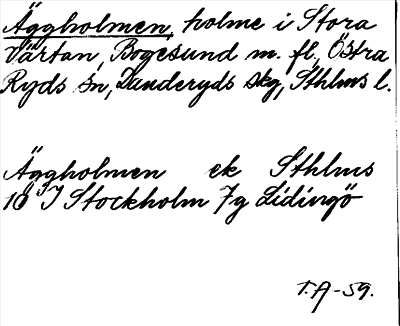 Äggholmen, holme i Stora
Värtan, Bogesund m. fl., Östra
Ryds sn, Danderyds skg, Sthlms l.
Äggholmen ek Sthlms
10 I Stockholm 7g Lidingö
T.A-59.